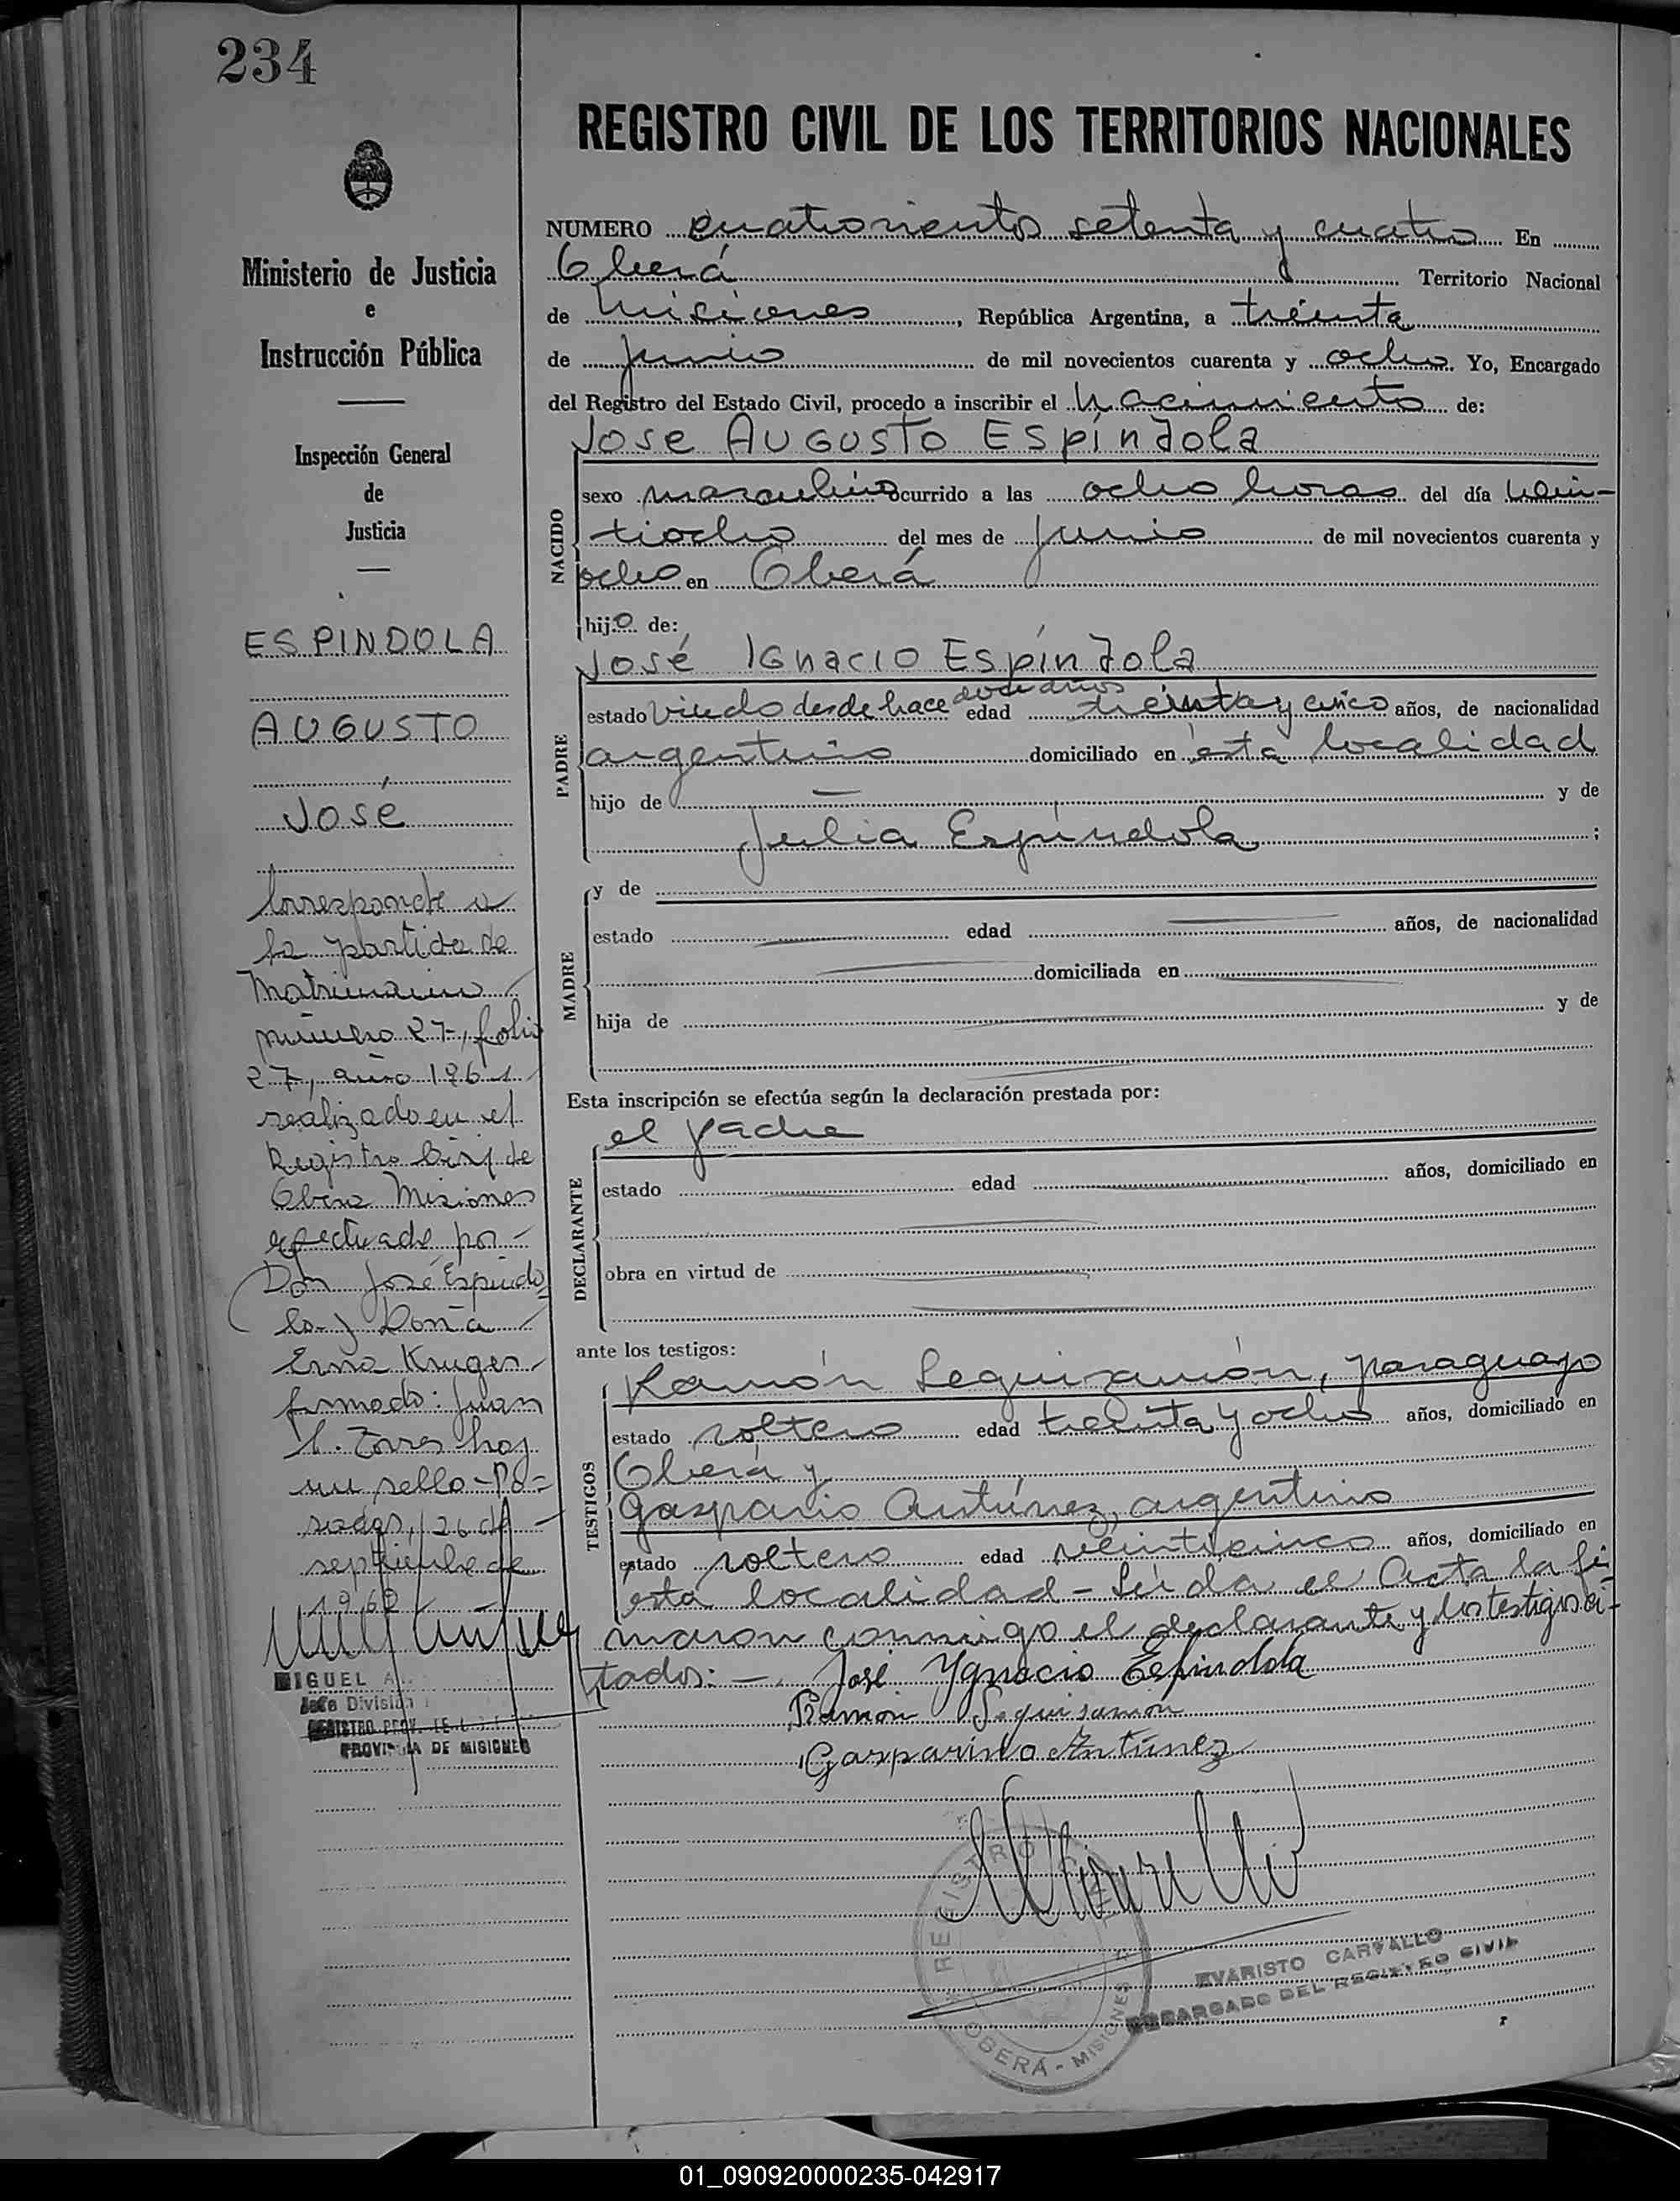 234
Ministerio de Justicia
e
Instrucción Pública
Inspección General
de
Justicia
ESPINDOLA
AUGUSTO
José
Corresponde a
la partida de
Matrimonio
número 27, folio
27, año 1961
realizado en el
Registro Civil de
Obera Misiones
efectuado por -
Don José Espindo=
la y Doña
Erna Kruger
firmado: Juan
Torres hay
un sello - Po=
sadas, 26 de -
septiembre de
MIGUEL A
Jefe División
REGISTRO PROV. DE L
PROVINCIA DE MISIONES
REGISTRO CIVIL DE LOS TERRITORIOS NACIONALES
NUMERO cuatrocientos setenta y cuatro En
Oberá Territorio Nacional
de Misiones, República Argentina, a treinta
de junio de mil novecientos cuarenta y ocho. Yo, Encargado
del Registro del Estado Civil, procedo a inscribir el nacimiento de:
Jose Augusto Espíndola
NACIDO
sexo masculino ocurrido a las ocho horas del día vein-
tiocho del mes de junio de mil novecientos cuarenta y
ocho en Oberá
hijo de:
José Ignacio Espíndola
PADRE
estado Viudo desde hace doce años edad treinta y cinco años, de nacionalidad
argentino domiciliado en esta localidad
hijo de — y de
Julia Espíndola ;
MADRE
y de
estado edad años, de nacionalidad
domiciliada en
hija de y de
Esta inscripción se efectúa según la declaración prestada por:
el padre
DECLARANTE
estado edad años, domiciliado en
obra en virtud de
ante los testigos:
TESTIGOS
Ramón Leguizamón, paraguayo
estado soltero edad treinta y ocho años, domiciliado en
Oberá y
Gasparino Antúnez, argentino
estado soltero edad veinticinco años, domiciliado en
esta localidad - Leída el Acta la fir-
maron conmigo el declarante y los testigos ci-
tados: - José Ygnacio Espindola
Ramón Leguisamon
Gasparino Antúnez
REGISTRO CIVIL
OBERÁ - MISIONES
EVARISTO CARVALLO
ENCARGADO DEL REGISTRO CIVIL
01_090920000235-042917